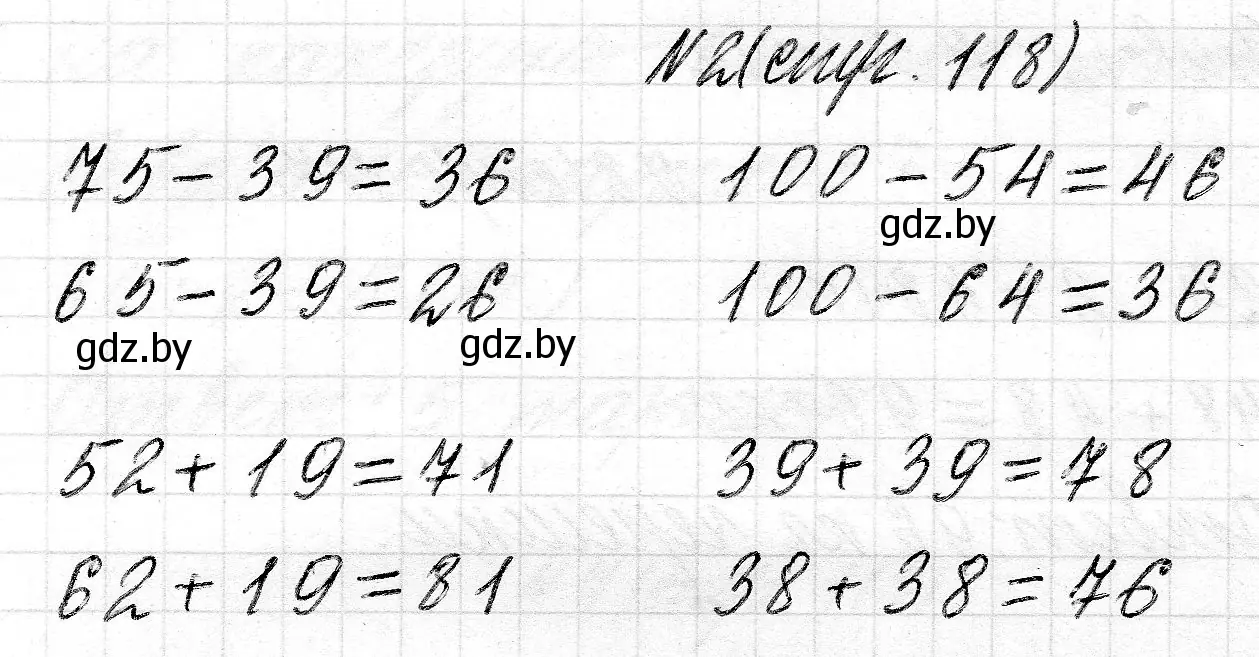 N2(стр. 118)
75 - 39 = 36 100 - 54 = 46
gdz.by
65 - 39 = 26 100 - 64 = 36
gdz.by gdz.by
52 + 19 = 71 39 + 39 = 78
62 + 19 = 81 38 + 38 = 76